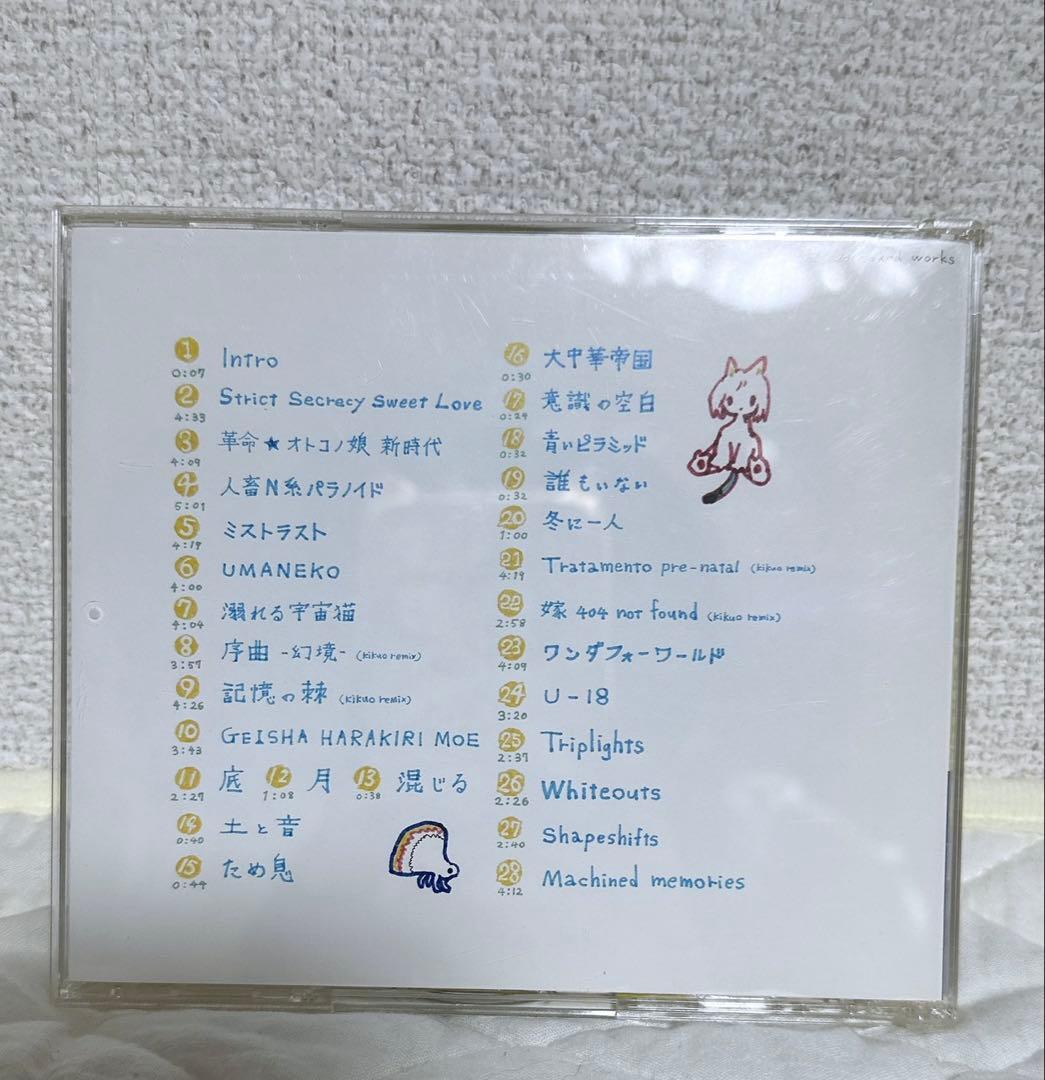 works
1 Intro
0:07
2 Strict Secracy Sweet Love
4:33
3 革命★オトコノ娘 新時代
4:09
4 人畜N系パラノイド
5:01
5 ミストラスト
4:19
6 UMANEKO
4:00
7 溺れる宇宙猫
4:04
8 序曲 -幻境- (kikuo remix)
3:57
9 記憶の棘 (kikuo remix)
4:26
10 GEISHA HARAKIRI MOE
3:43
11 底 12 月 13 混じる
2:27 1:08 0:38
14 土と音
0:40
15 ため息
0:44
16 大中華帝国
0:30
17 意識の空白
0:29
18 青いピラミッド
0:32
19 誰もいない
0:32
20 冬に一人
1:00
21 Tratamento pre-natal (kikuo remix)
4:19
22 嫁 404 not found (kikuo remix)
2:58
23 ワンダフォーワールド
4:09
24 U-18
3:20
25 Triplights
2:37
26 Whiteouts
2:26
27 Shapeshifts
2:40
28 Machined memories
4:12